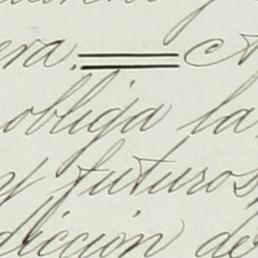 era. = A
obliga la
y futuros,
dicción de